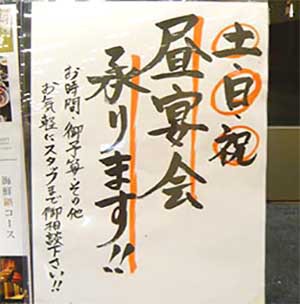 土・日・祝
昼宴会
承ります!!
お時間・御予算・その他
お気軽にスタッフまで御相談下さい!!
海鮮鍋コース